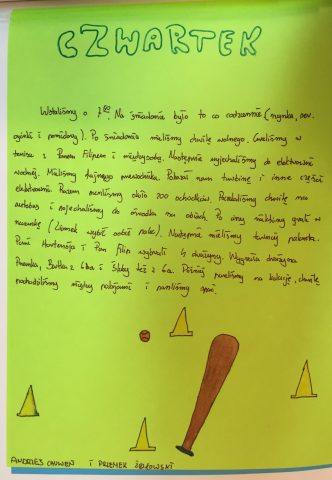 CZWARTEK
Wstaliśmy o 7:00. Na śniadanie było to co codziennie (szynka, ser,
ogórki i pomidory). Po śniadaniu mieliśmy chwilę wolnego. Graliśmy w
tenisa z Panem Filipem i między sobą. Następnie wyjechaliśmy do elektrowni
wodnej. Mieliśmy fajnego przewodnika. Pokazał nam turbinę i inne części
elektrowni. Razem zwiedziliśmy około 200 schodków. Poczekaliśmy chwilę na
autobus i pojechaliśmy do ośrodka na obiad. Po
(Ziemek wybił sobie palec). Następnie mieliśmy turniej palanta.
Pani Hortensja i Pan Filip wybrali 4 drużyny. Wygrała drużyna
Przemka, Bartka z 6ba i też z 6a. Później poszliśmy na kolację, chwilę
pochodziliśmy między pokojami i poszliśmy spać.
ANDRZEJ I PRZEMEK